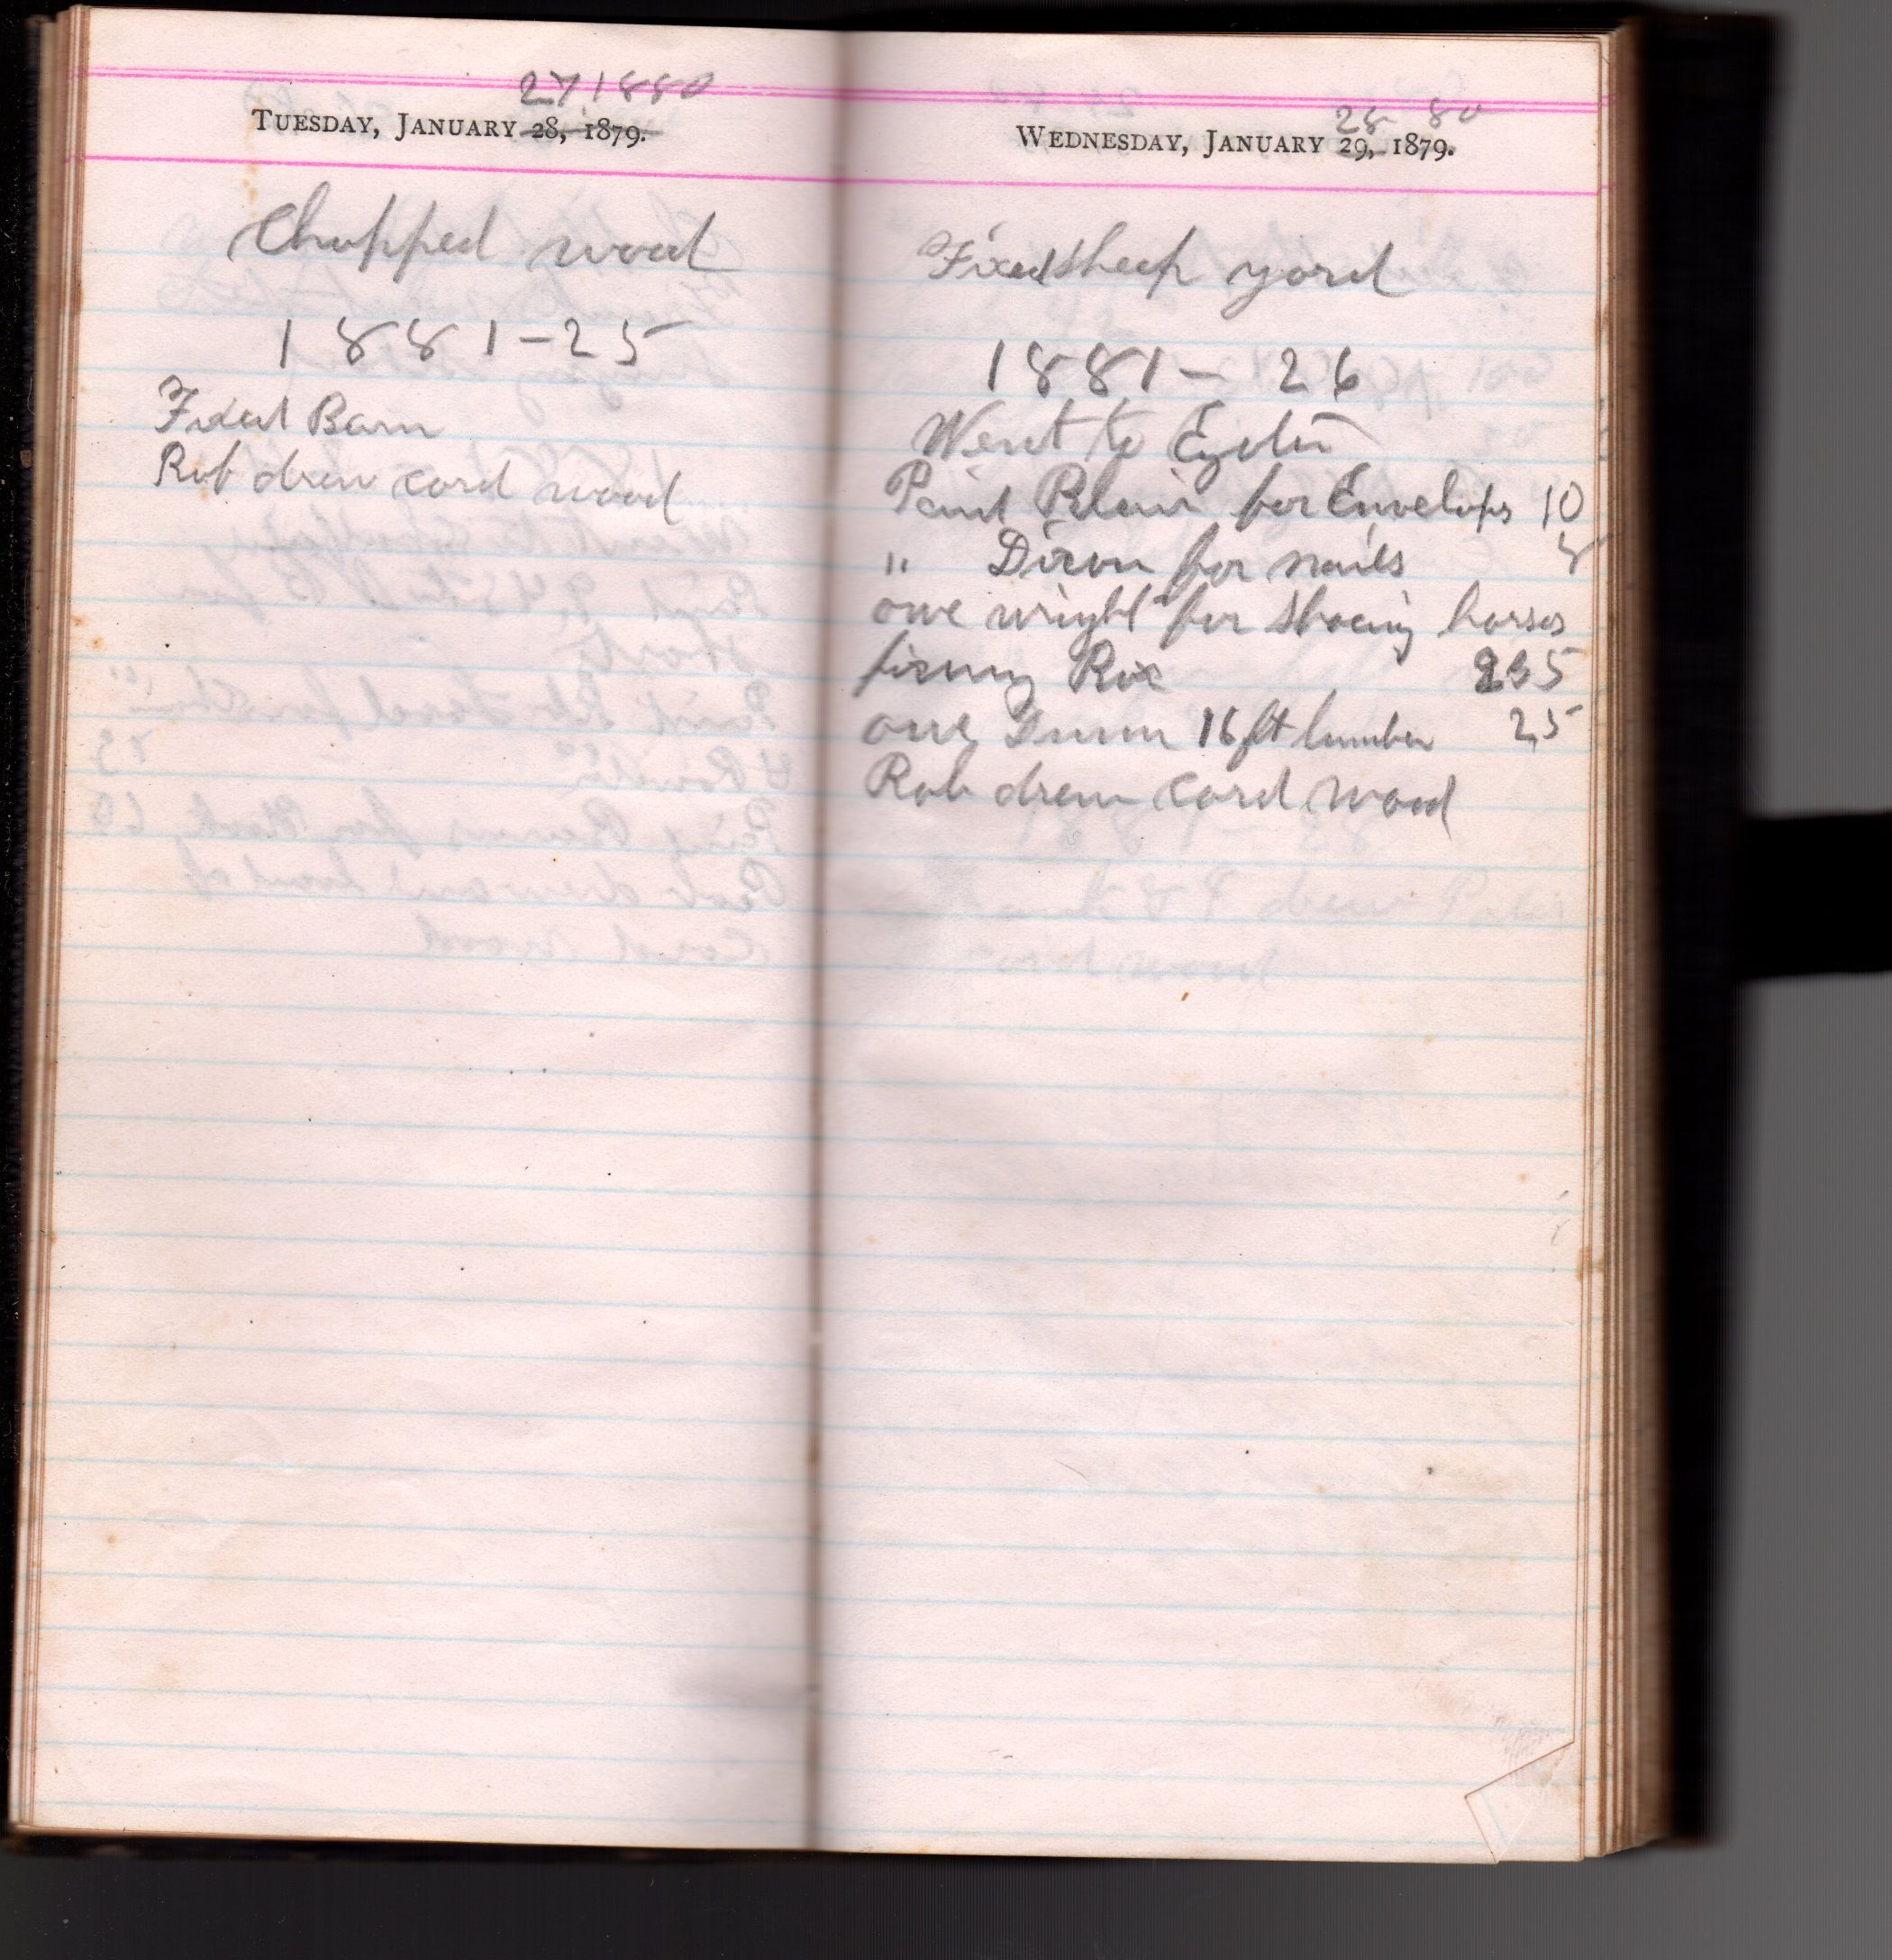 27 1880
TUESDAY, JANUARY 28, 1879.
Chopped wood
1881-25
Fixed Barn
Rob drew cord wood
28 80
WEDNESDAY, JANUARY 29, 1879.
Fixed sheep yard
1881- 26
Went to
Paid Blair for Envelops 10
" Dixon for nails
owe wright for Shoeing horses
fixing
owe Dunn 16 ft lumber 25
Rob drew cord wood